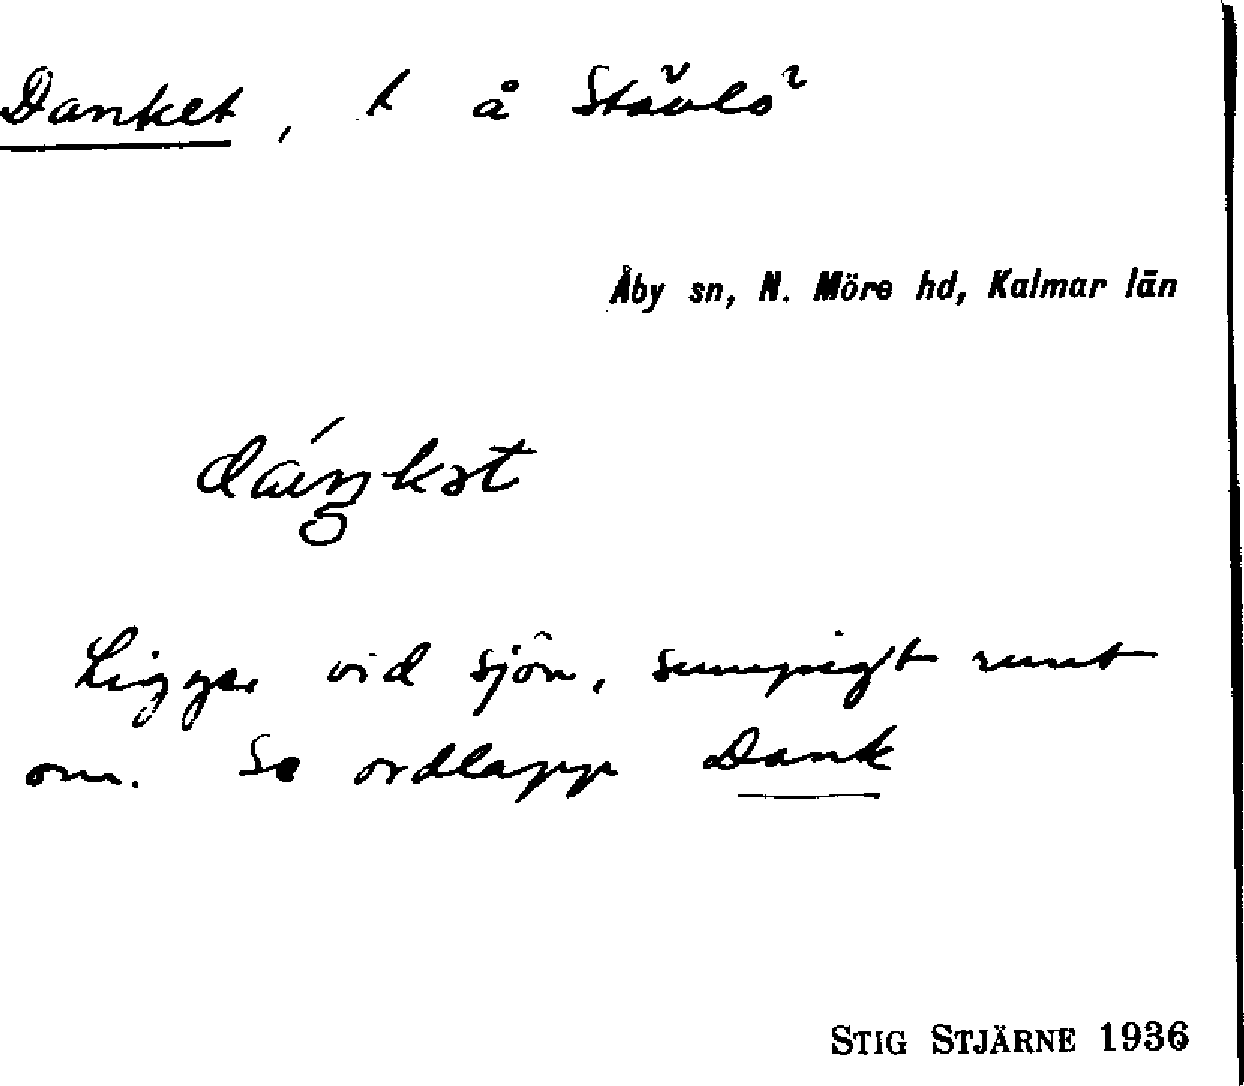 Danket, t å Stävlö²
Åby sn, N. Möre hd, Kalmar län
Ligger vid sjön, sumpigt runt
om. Se ordlapp Dank
STIG STJÄRNE 1936